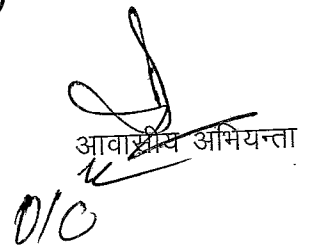 आवासीय अभियन्ता
O/C